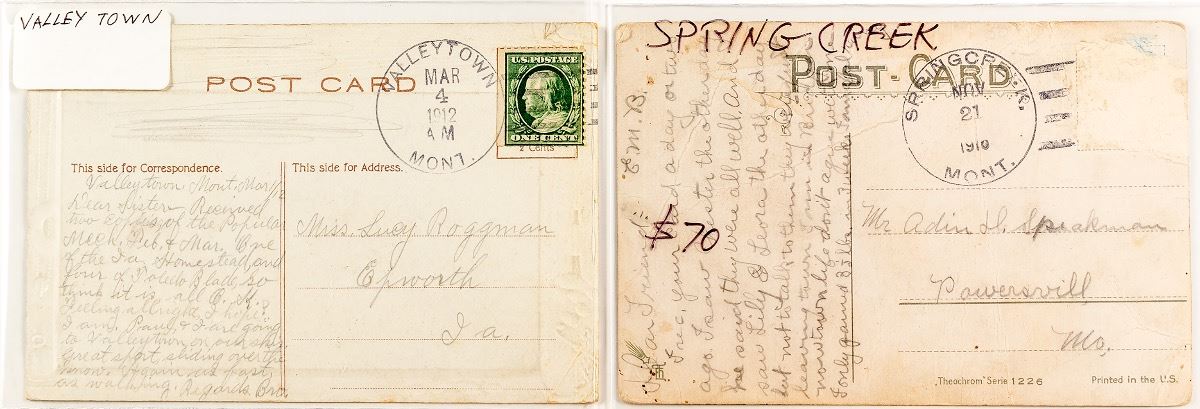 VALLEY TOWN
POST CARD
VALLEYTOWN
MAR
4
1912
A M
MONT.
U.S. POSTAGE
ONE CENT
2 Cents
This side for Correspondence.
This side for Address.
Valleytown, Mont. Mar
Dear Sister: Received
two copies of the Popular
Mech. Feb. & Mar. One
of the Ia. Homestead, and
four of Toledo Blade, so
think it is all O.K.
Feeling allright I hope.
I am. Paul & I are going
to Valleytown on our skis
great sport, sliding over the
snow. Again as fast
as walking. Regards Bro.
Miss. Lucy Roggman
Epworth
Ia.
SPRING CREEK
POST-CARD
NOV
21
MONT.
$.70
E.M.B.
Dear Friend
Trec. your card a day or two
ago. I saw Lester the other
he said they were all well, and
saw Lily & Leora the other day
but not to talk to them they
Mr Adin H. Speakman
Powersvill
Mo.
„Theochrom" Serie 1226
Printed in the U.S.